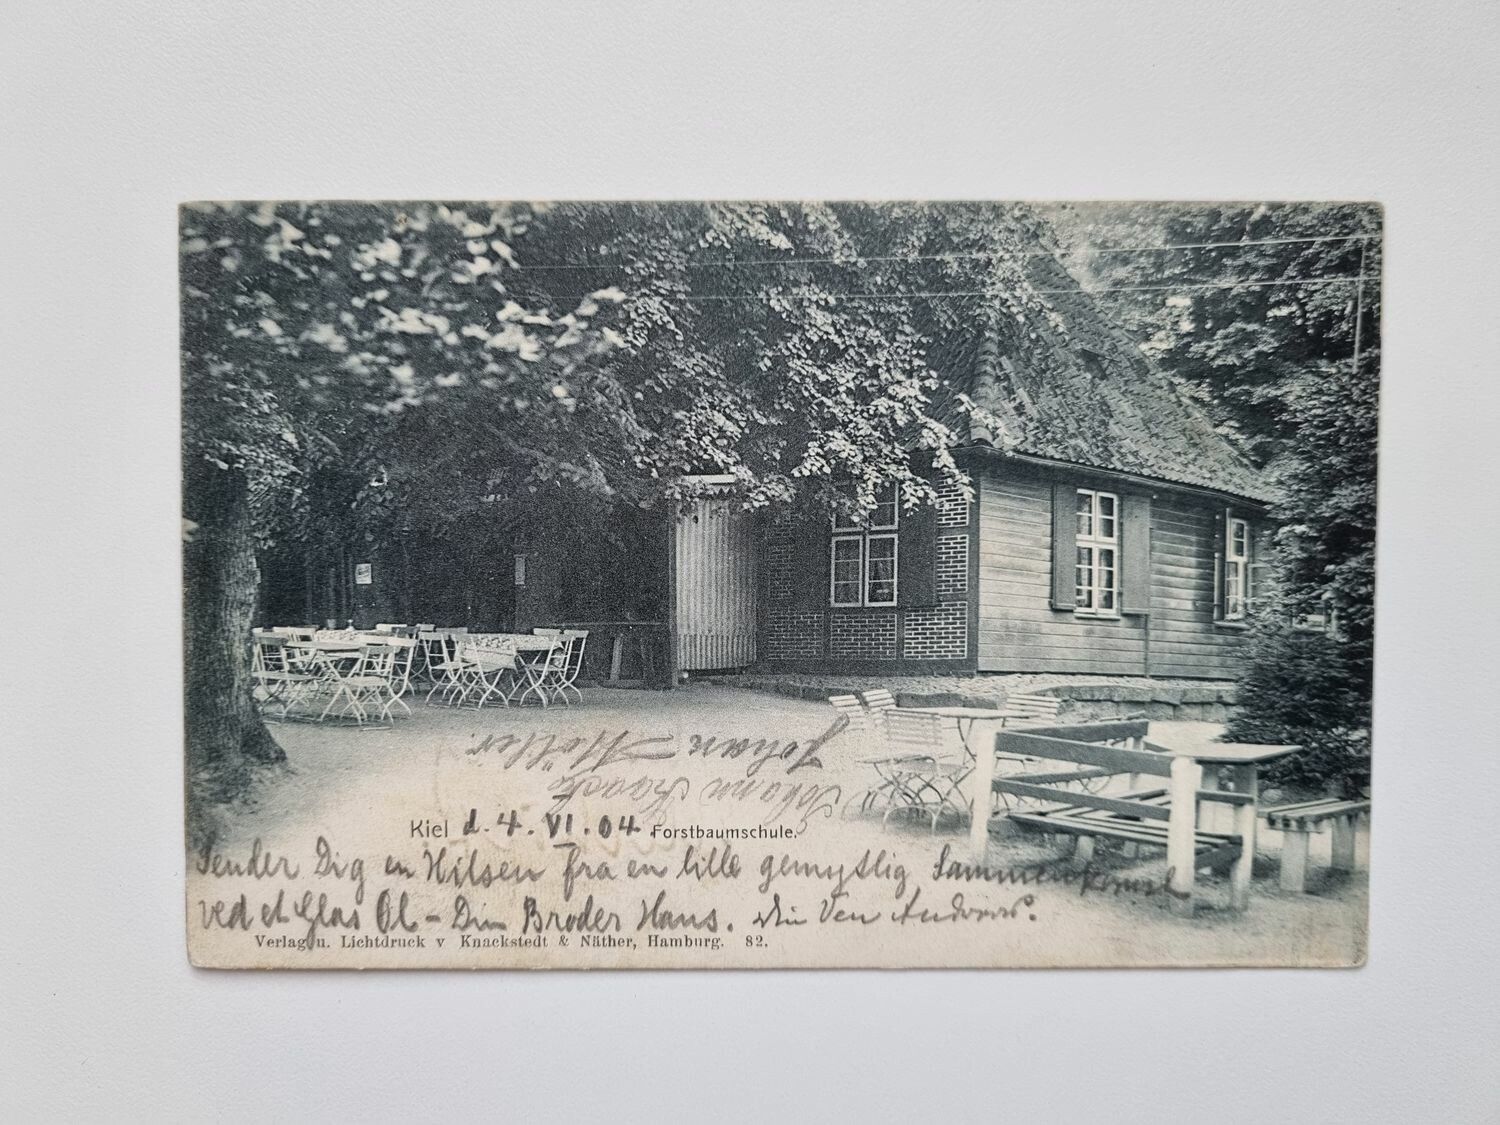 Johan Møller.
Johann Haack
Kiel d. 4. VI. 04 Forstbaumschule.
Sender Dig en Hilsen fra en lille gemytlig Sammenkomst
ved et Glas Øl - Din Broder Hans. Din Ven
Verlag u. Lichtdruck v Knackstedt & Näther, Hamburg. 82.